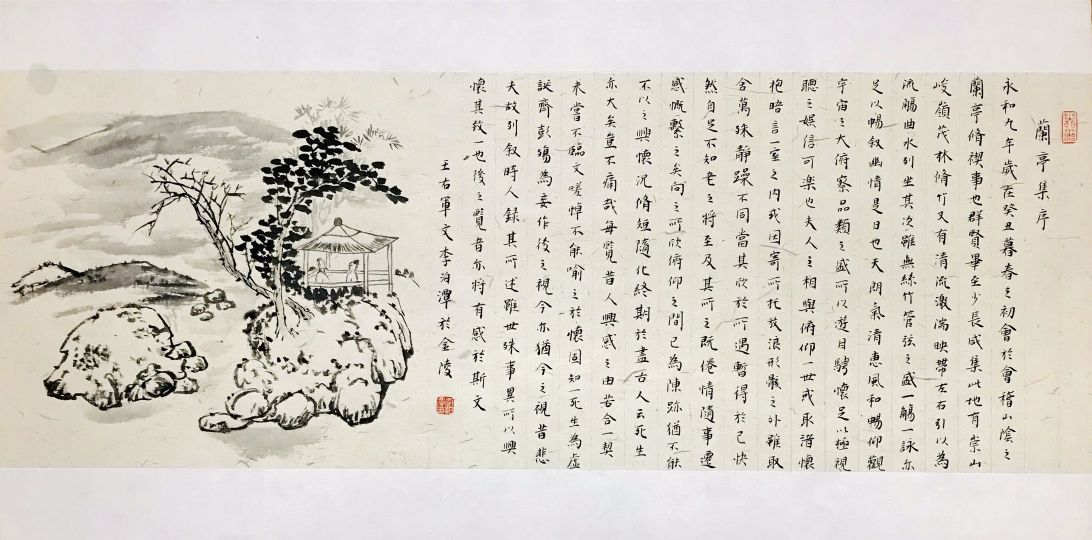 蘭亭集序
永和九年歲在癸丑暮春之初會於會稽山陰之
蘭亭脩禊事也群賢畢至少長咸集此地有崇山
峻嶺茂林脩竹又有清流激湍映帶左右引以為
流觴曲水列坐其次雖無絲竹管弦之盛一觴一詠亦
足以暢叙幽情是日也天朗氣清惠風和暢仰觀
宇宙之大俯察品類之盛所以遊目騁懷足以極視
聽之娛信可楽也夫人之相與俯仰一世或取諸懷
抱晤言一室之內或因寄所托放浪形骸之外雖取
舍萬殊靜躁不同當其欣於所遇暫得於己快
然自足不知老之將至及其所之既倦情隨事遷
感慨繫之矣向之所欣俯仰之間已為陳跡猶不能
不以之興懷況脩短隨化終期於盡古人云死生
亦大矣豈不痛哉每覽昔人興感之由若合一契
未嘗不臨文嗟悼不能喻之於懷固知死生為虛
誕齊彭殤為妄作後之視今亦猶今之視昔悲
夫故列叙時人錄其所述雖世殊事異所以興
懷其致一也後之覽者亦將有感於斯文
王右軍文李泊潭於金陵